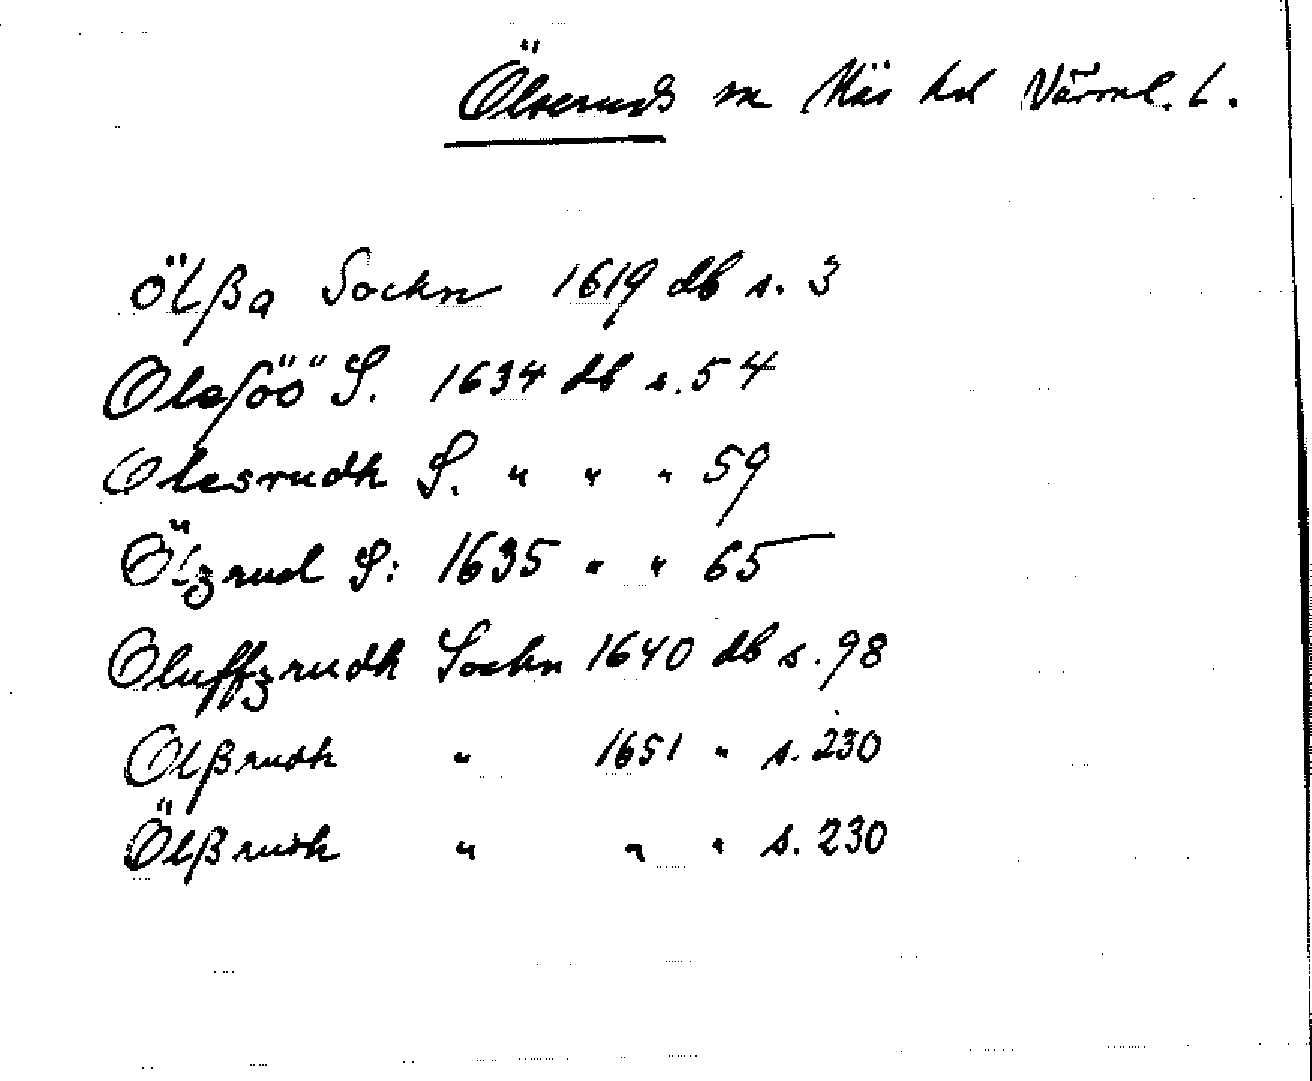 Ölseruds sn Näs hd Värml. l.
Ölßa Sockn 1619 db s. 3
Olesöö S. 1634 db s. 54
Olesrudh S. " " " 59
Ölzrud S: 1635 " " 65
Oluffzrudh Sockn 1640 db s. 98
Olßrudh " 1651 " s. 230
Ölßrudh " " " s. 230